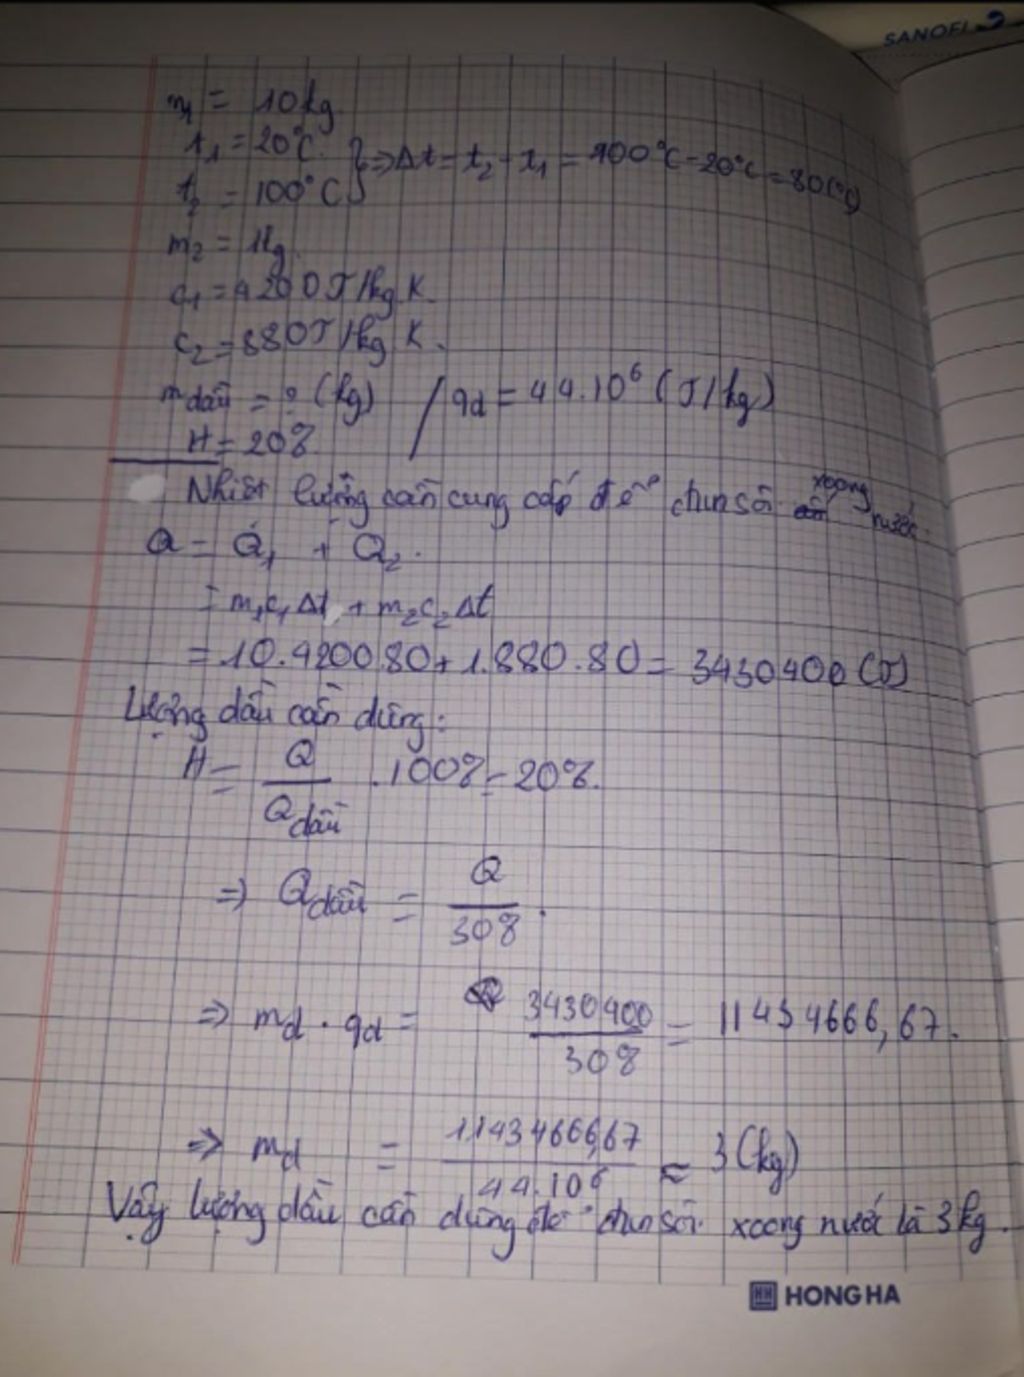 SANOFI
m₁ = 10kg.
t₁ = 20°C. } ⇒ Δt = t₂ - t₁ = 100°C - 20°C = 80(°C)
t₂ = 100°C
m₂ = 1kg.
c₁ = 4200J/kg K.
c₂ = 880J/kg K.
m dầu = ? (kg) / qd = 44.10⁶ (J/kg)
H = 20%
Nhiệt lượng cần cung cấp để đun sôi xoong nước.
Q = Q₁ + Q₂.
= m₁c₁Δt + m₂c₂Δt
= 10.4200.80 + 1.880.80 = 3430400 (J)
Lượng dầu cần dùng:
H = Q / Qdầu . 100% = 20%.
⇒ Qdầu = Q / 30% .
⇒ md . qd = 3430400 / 30% = 11434666,67.
⇒ md = 11434666,67 / 44.10⁶ ≈ 3 (kg)
Vậy lượng dầu cần dùng để đun sôi xoong nước là 3kg.
HONG HA